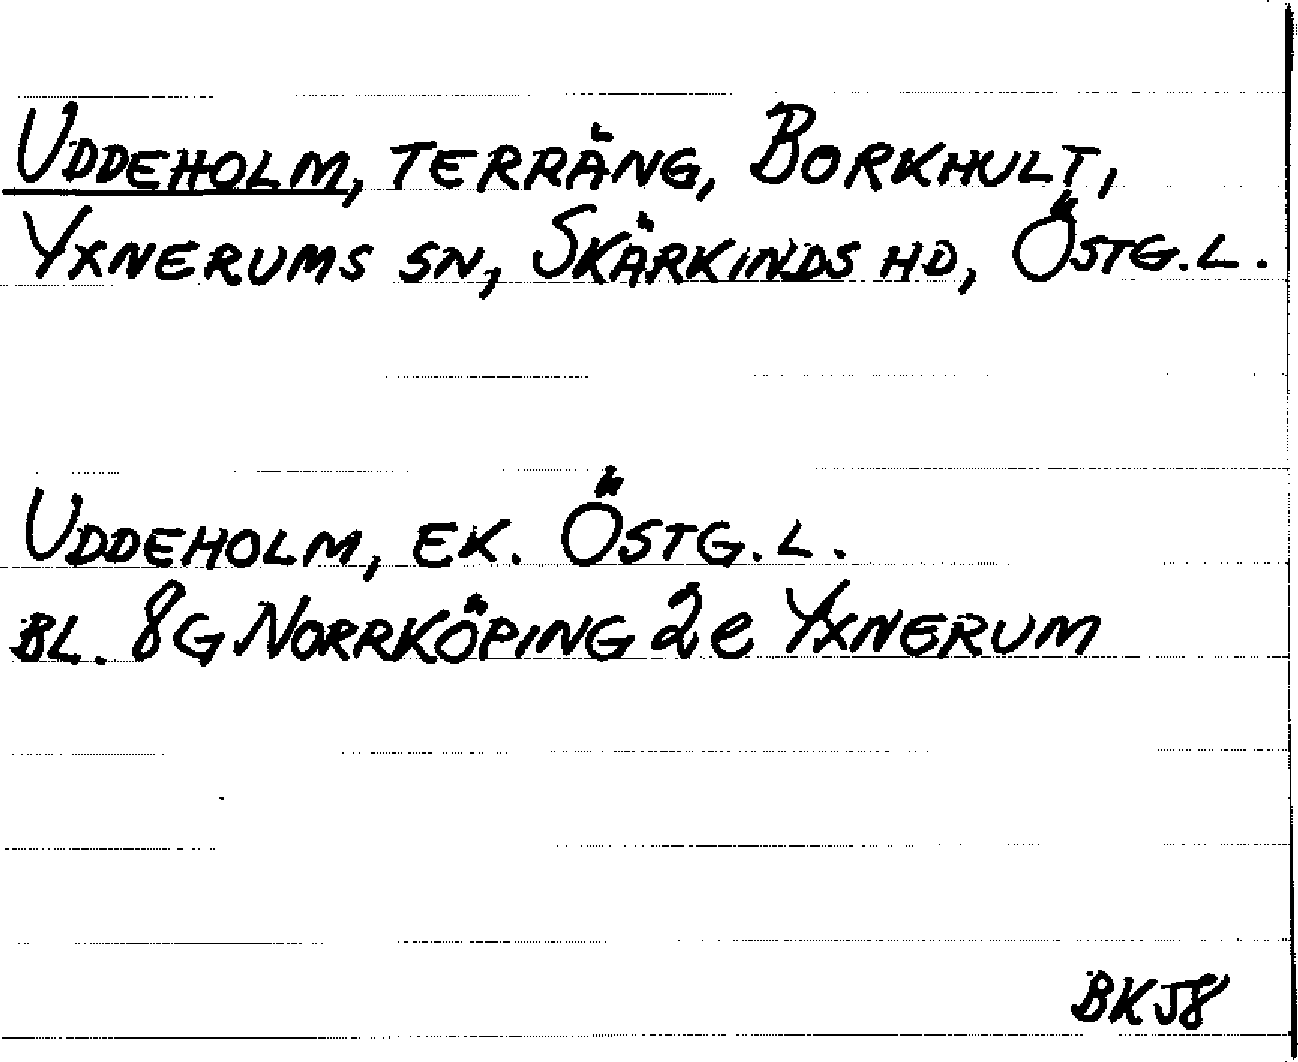 UDDEHOLM, TERRÄNG, BORKHULT,
YXNERUMS SN, SKÄRKINDS HD, ÖSTG.L.
UDDEHOLM, EK. ÖSTG.L.
BL. 8G NORRKÖPING 2e YXNERUM
BKJ8